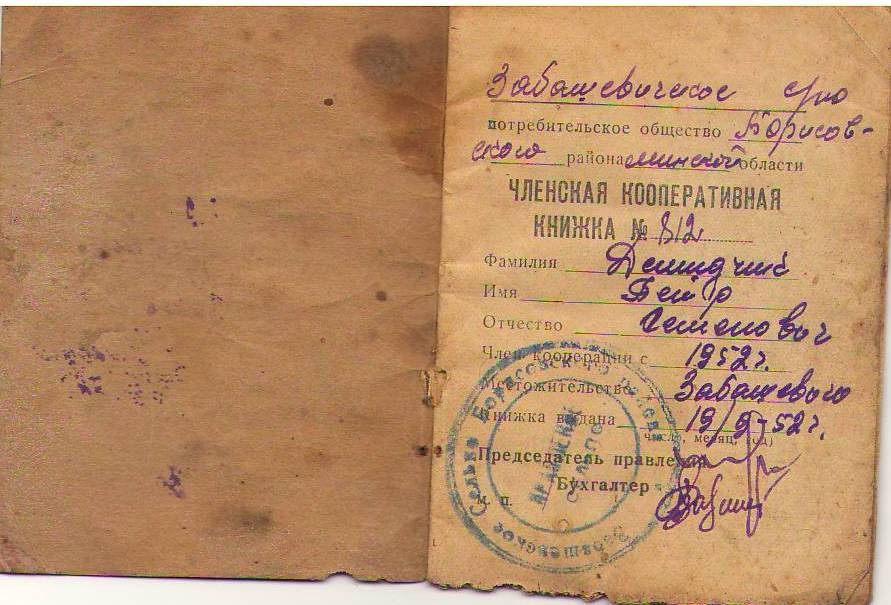 Забашевичское с/по
потребительское общество Борисов-
ского района Минской области
ЧЛЕНСКАЯ КООПЕРАТИВНАЯ
КНИЖКА № 812
Фамилия Демидчик
Имя Петр
Отчество Семенович
Член кооперации с 1952 г.
Местожительство Забашевичи
Книжка выдана 19/9-52 г.
число, месяц, год)
Председатель правления
Бухгалтер
м. п.